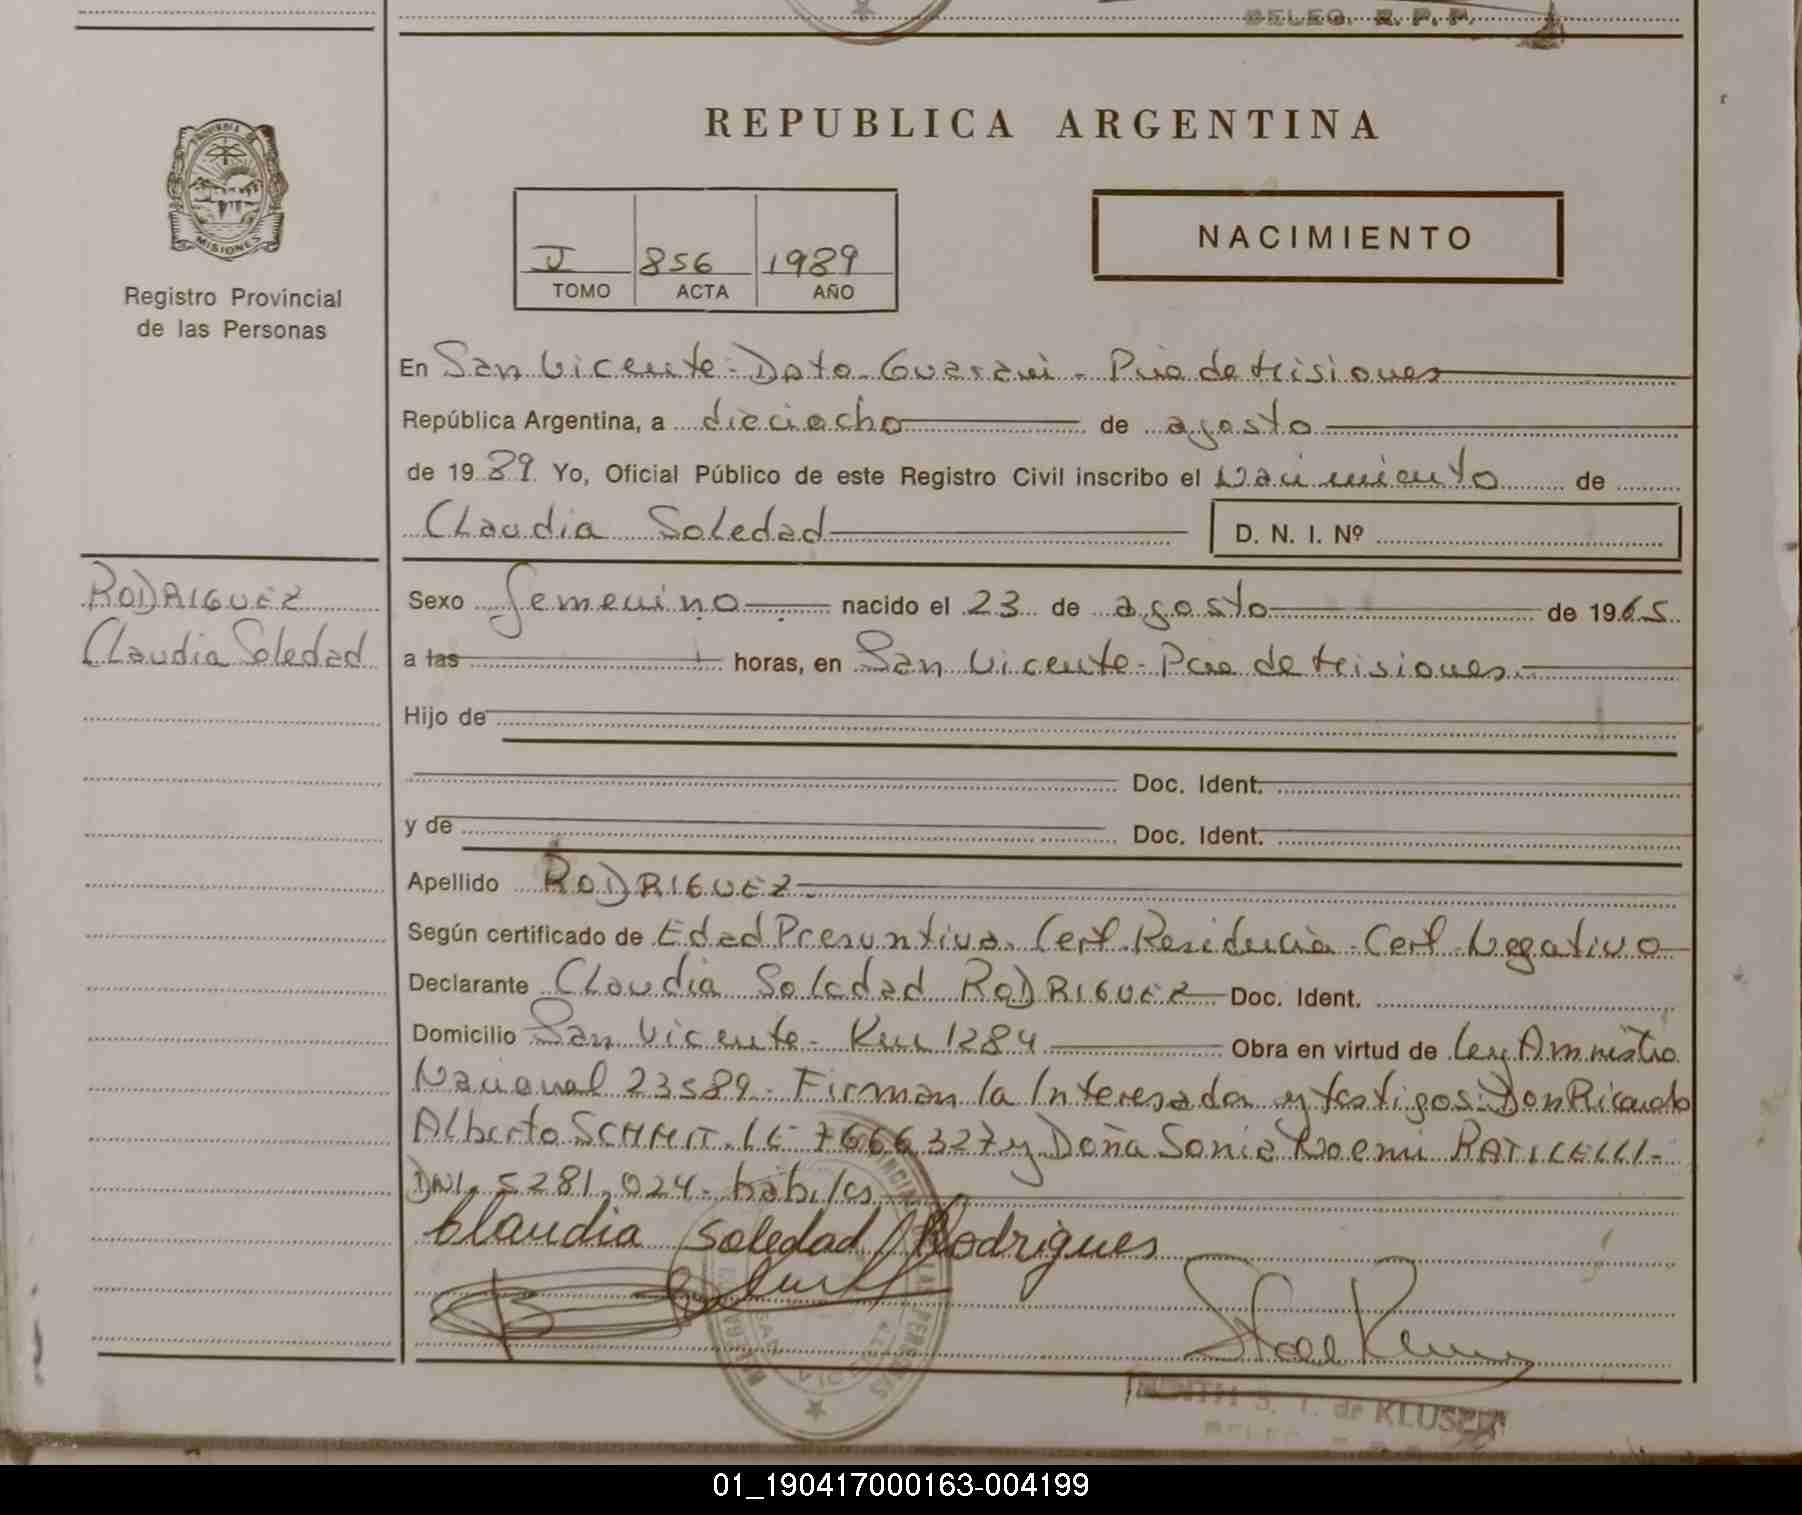 DELEG. R. P. P.
REPUBLICA ARGENTINA
PROVINCIA DE
MISIONES
Registro Provincial
de las Personas
856 1989
TOMO ACTA AÑO
NACIMIENTO
En San Vicente - Dpto. Guaraní - Pcia de Misiones
República Argentina, a dieciocho de agosto
de 1989 Yo, Oficial Público de este Registro Civil inscribo el Nacimiento de
Claudia Soledad D. N. I. Nº
RODRIGUEZ
Claudia Soledad
Sexo femenino nacido el 23 de agosto de 1965
a las horas, en San Vicente - Pcia de Misiones.
Hijo de
Doc. Ident.
y de Doc. Ident.
Apellido RODRIGUEZ.
Según certificado de Edad Presuntiva. Cert. Residencia - Cert. Negativo
Declarante Claudia Soledad RODRIGUEZ Doc. Ident.
Domicilio San Vicente - Km 1284 Obra en virtud de Ley Amnistia
Nacional 23589 - Firman la Interesada y testigos: Don Ricardo
Alberto SCHMIT. LE 7666327 y Doña Sonia Noemi
DNI. 5281.024 - habiles
Claudia Soledad Rodrigues
S. T. de KLUSZIN
01_190417000163-004199